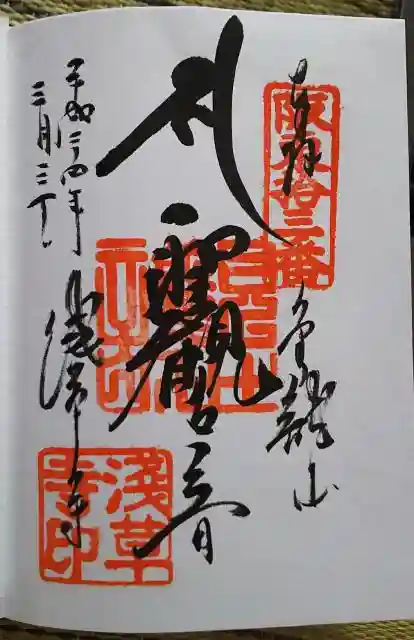 奉拝
坂東拾三番
金龍山
聖觀世音
平成二四年
三月三
浅草寺
淺草寺印